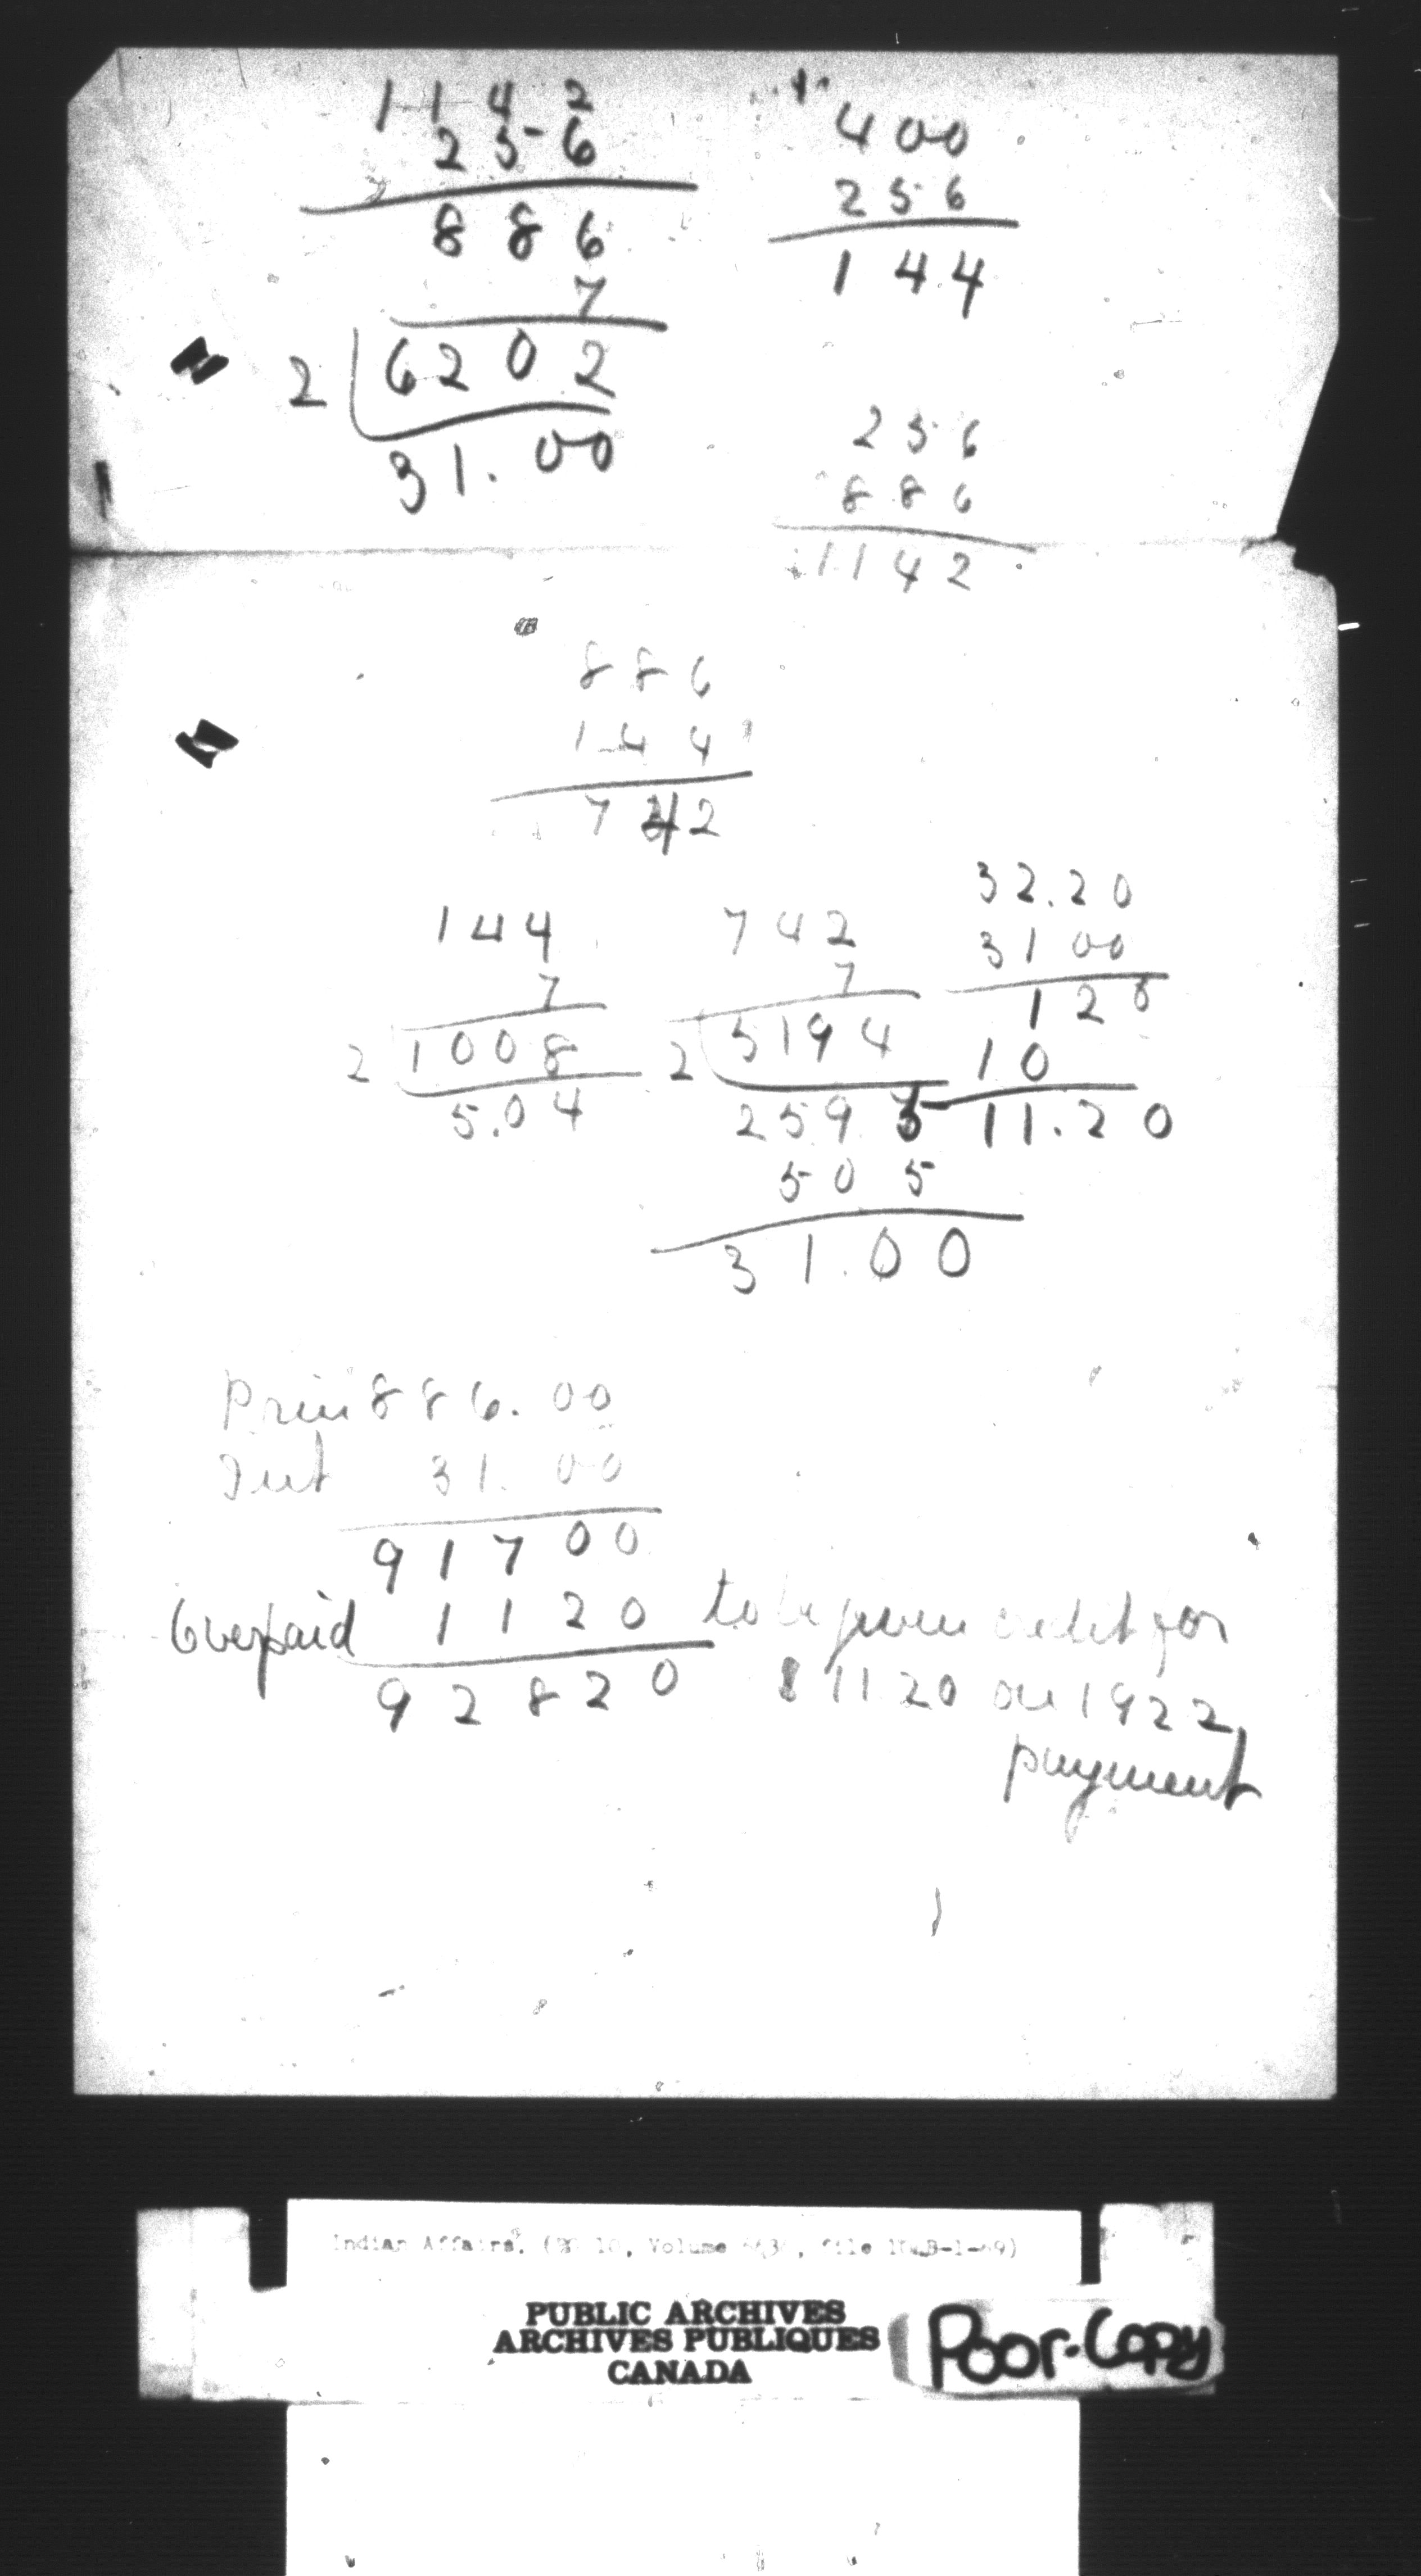 1142
256
886
7
2 6202
31.00
400
256
144
256
886
1142
886
144
742
144
7
2 1008
5.04
742
7
2 5194
2595
505
31.00
32.20
3100
120
10
11.20
Prin 886.00
Int 31.00
91700
Overpaid 1120 to be given credit for
92820 $1120 on 1922
payment
Indian Affairs. (RG 10, Volume
PUBLIC ARCHIVES
ARCHIVES PUBLIQUES
CANADA
Poor-Copy